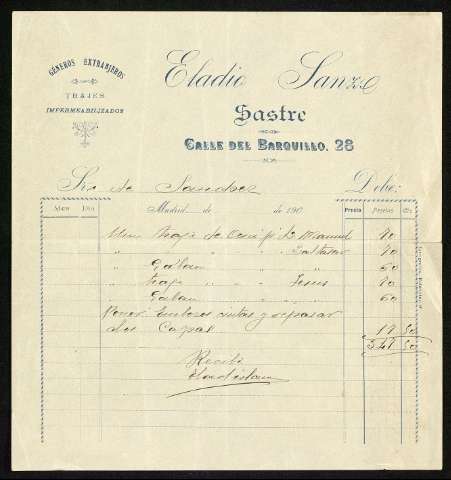 GÉNEROS EXTRANJEROS
TRAJES
IMPERMEABILIZADOS
Eladio Sanz
Sastre
CALLE DEL BARQUILLO, 28
Sr. de Sanchez Debe:
Mes Día Madrid de de 190 Precio Pesetas Cts
Un traje de p. D. Manuel 70
" " " " " Baltasar 70
" Gabán " " " 60
" traje " " Jesus 70
" Gaban " " " 60
Poner cintas y repasar
dos Capas 17 50
347 50
Recibí